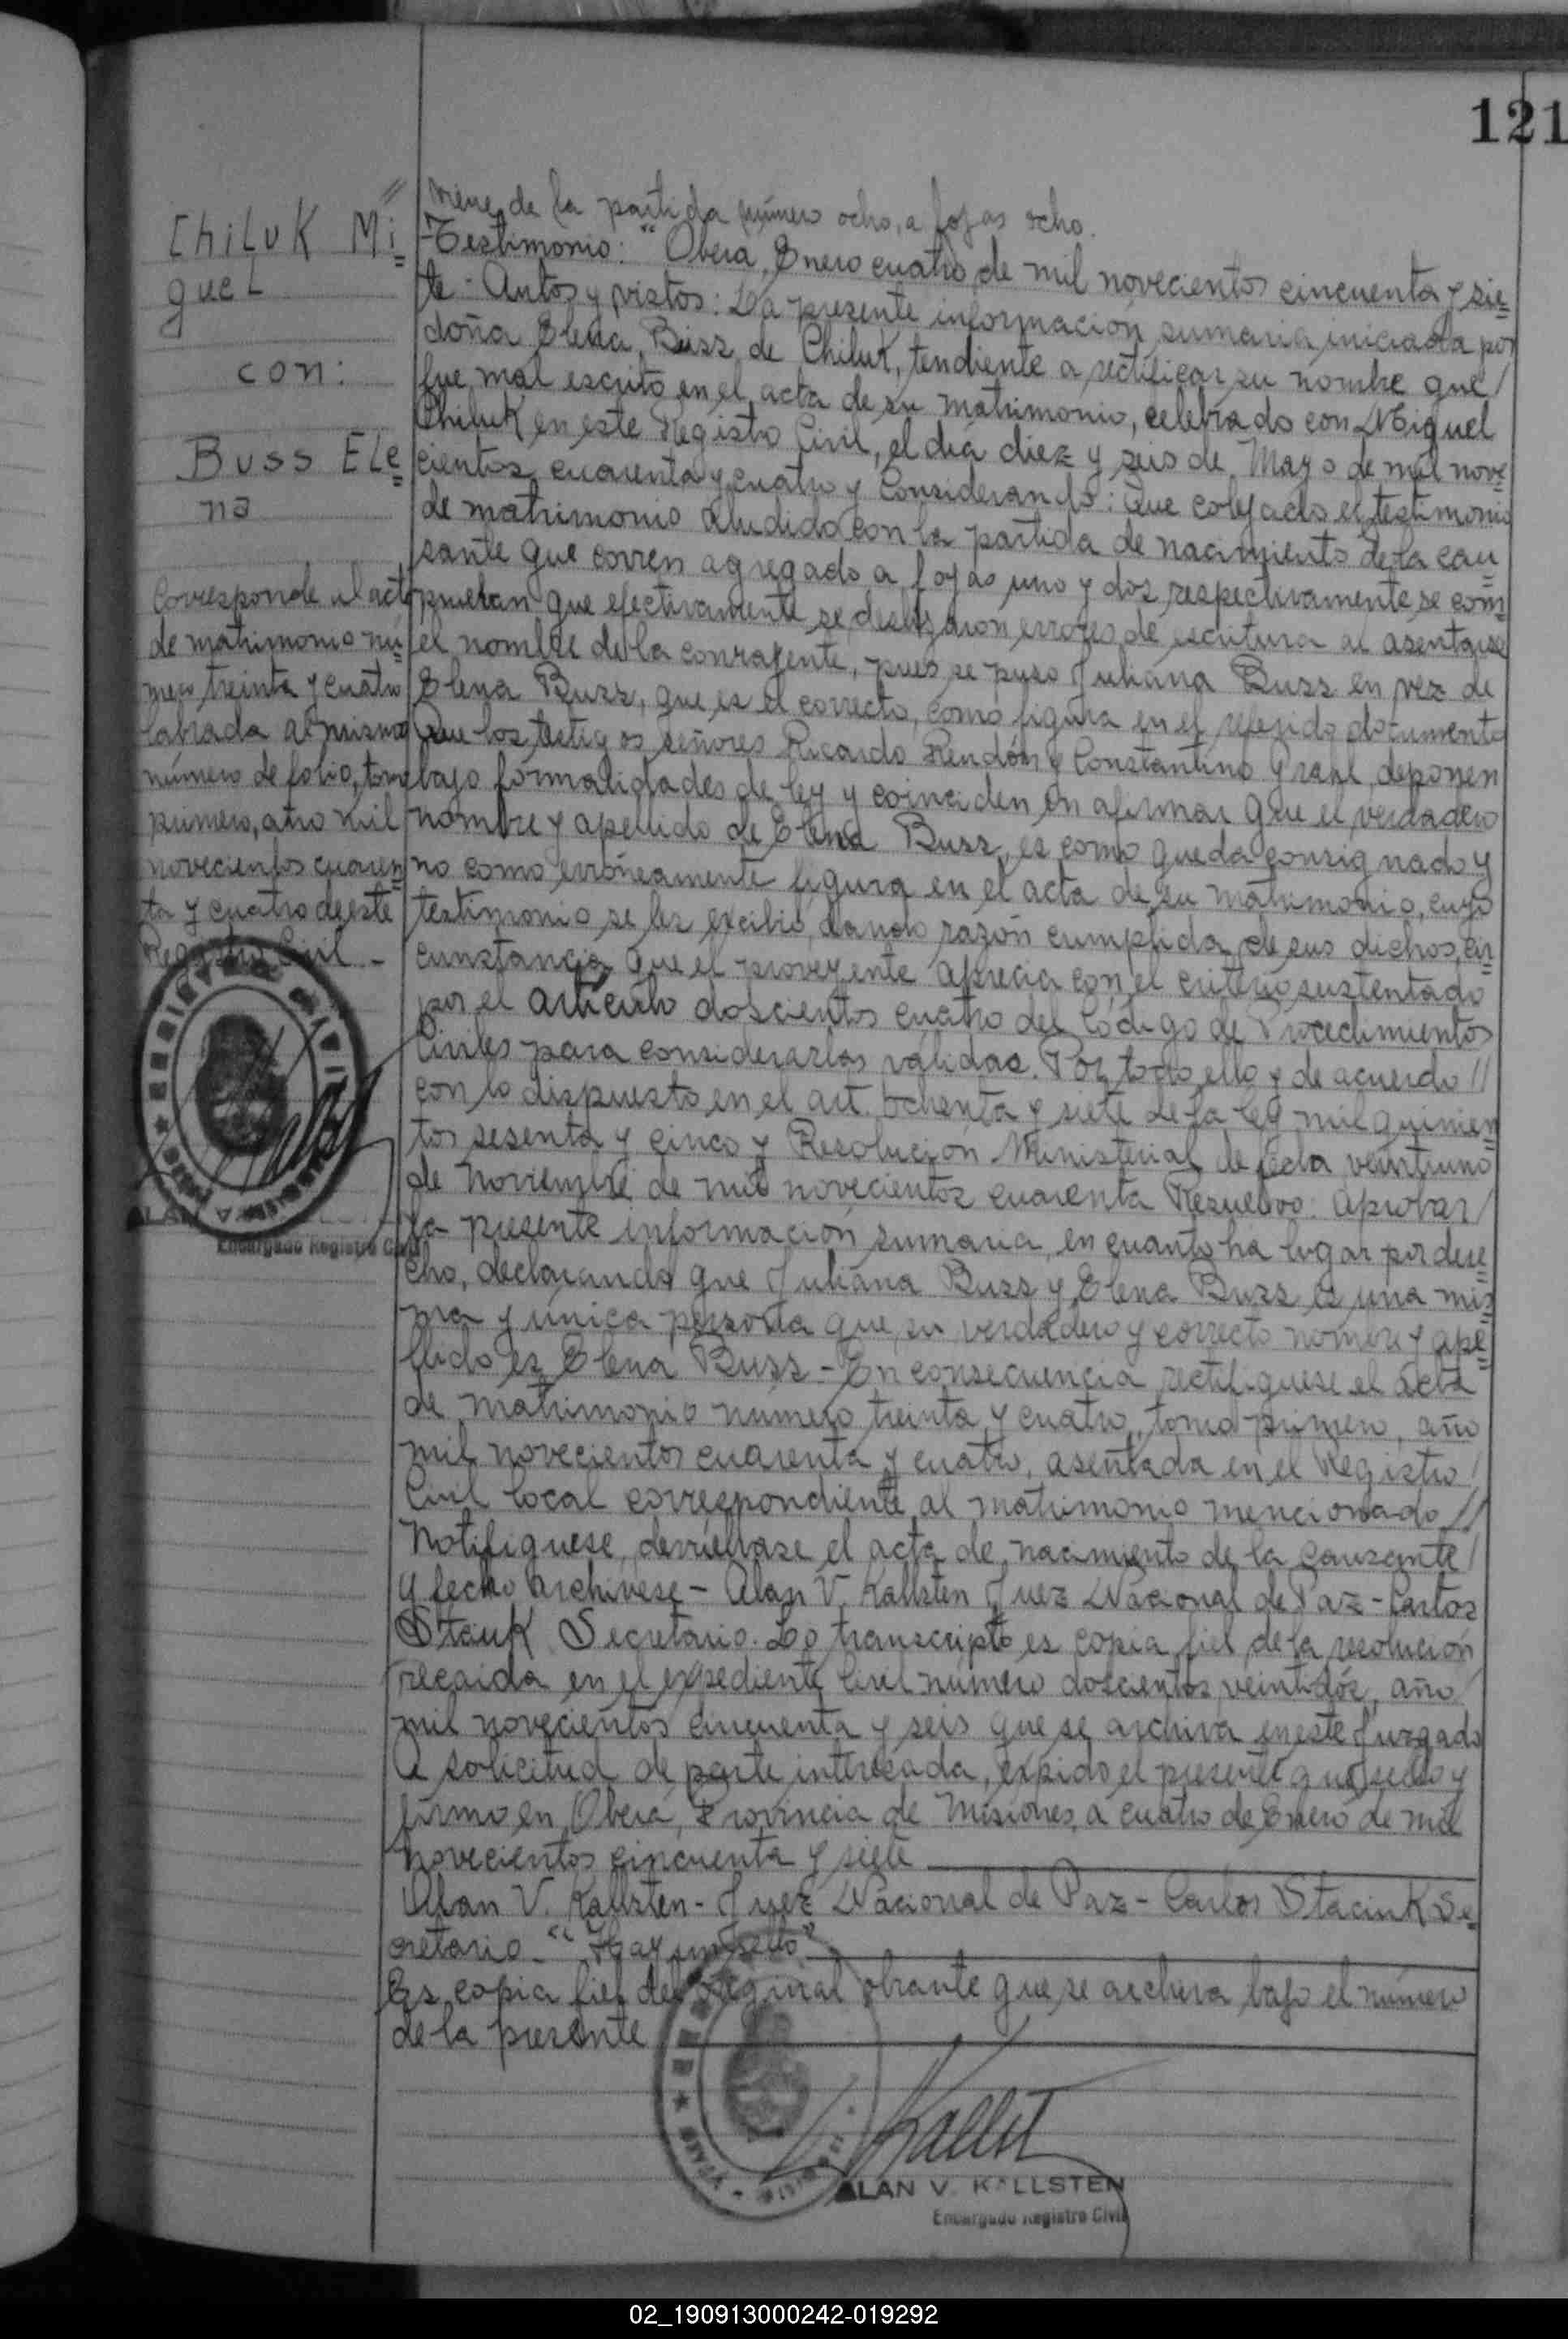 121
Chiluk Mi=
guel
con:
Buss Ele=
na
Corresponde al acta
de matrimonio nú=
mero treinta y cuatro
labrada al mismo
número de folio, tomo
primero, año mil
novecientos cuaren=
ta y cuatro de este
Registro Civil -
Encargado Registro Civil
// Viene de la partida número ocho, a fojas ocho.
-Testimonio: "Obera, Enero cuatro de mil novecientos cincuenta y sie=
te - Autos y vistos: La presente información sumaria iniciada por
doña Elena Buss de Chiluk, tendiente a rectificar su nombre que /
fue mal escrito en el acta de su matrimonio, celebrado con Miguel
Chiluk en este Registro Civil, el día diez y seis de Mayo de mil nove=
cientos cuarenta y cuatro y Considerando: Que cotejado el testimonio
de matrimonio aludido con la partida de nacimiento de la cau=
sante que corren agregado a fojas uno y dos respectivamente se com=
prueban que efectivamente se deslizaron errores de escritura al asentarse
el nombre de la contrayente, pues se puso Juliana Buss en vez de
Elena Buss, que es el correcto, como figura en el referido documento
Que los testigos señores Ricardo Rendón y Constantino deponen
bajo formalidades de ley y coinciden en afirmar que el verdadero
nombre y apellido de Elena Buss, es como queda consignado y
no como erróneamente figura en el acta de su matrimonio, cuyo
testimonio se les excibió, dando razón cumplida de sus dichos, cir=
cunstancia que el proveyente aprecia con el criterio sustentado
por el artículo doscientos cuatro del Código de Procedimientos
Civiles para considerarlas válidas. Por todo ello y de acuerdo //
con lo dispuesto en el art. ochenta y siete de la ley mil quinien=
tos sesenta y cinco y Resolución Ministerial de fecha veintiuno
de Noviembre de mil novecientos cuarenta Resuelvo: Aprobar /
la presente información sumaria, en cuanto ha lugar por dere=
cho, declarando que Juliana Buss y Elena Buss es una mis=
ma y única persona que su verdadero y correcto nombre y ape=
llido es Elena Buss - En consecuencia rectifiquese el acta
de matrimonio número treinta y cuatro, tomo primero, año
mil novecientos cuarenta y cuatro, asentada en el Registro /
Civil local correspondiente al matrimonio mencionado //
Notifiquese, devuélvase el acta de nacimiento de la causante /
y fecho archivese - Alan V. Kallsten Juez Nacional de Paz - Carlos
Secretario. Lo transcripto es copia fiel de la resolución
recaida en el expediente Civil número doscientos veintidós, año
mil novecientos cincuenta y seis que se archiva en este Juzgado
A solicitud de parte interesada, expido el presente que sello y
firmo en Obera, Provincia de Misiones, a cuatro de Enero de mil
novecientos cincuenta y siete
Alan V. Kallsten - Juez Nacional de Paz - Carlos Staciuk Se=
cretario - "Hay un sello"
Es copia fiel del original obrante que se archiva bajo el número
de la presente
ALAN V. KALLSTEN
Encargado Registro Civil
02_190913000242-019292